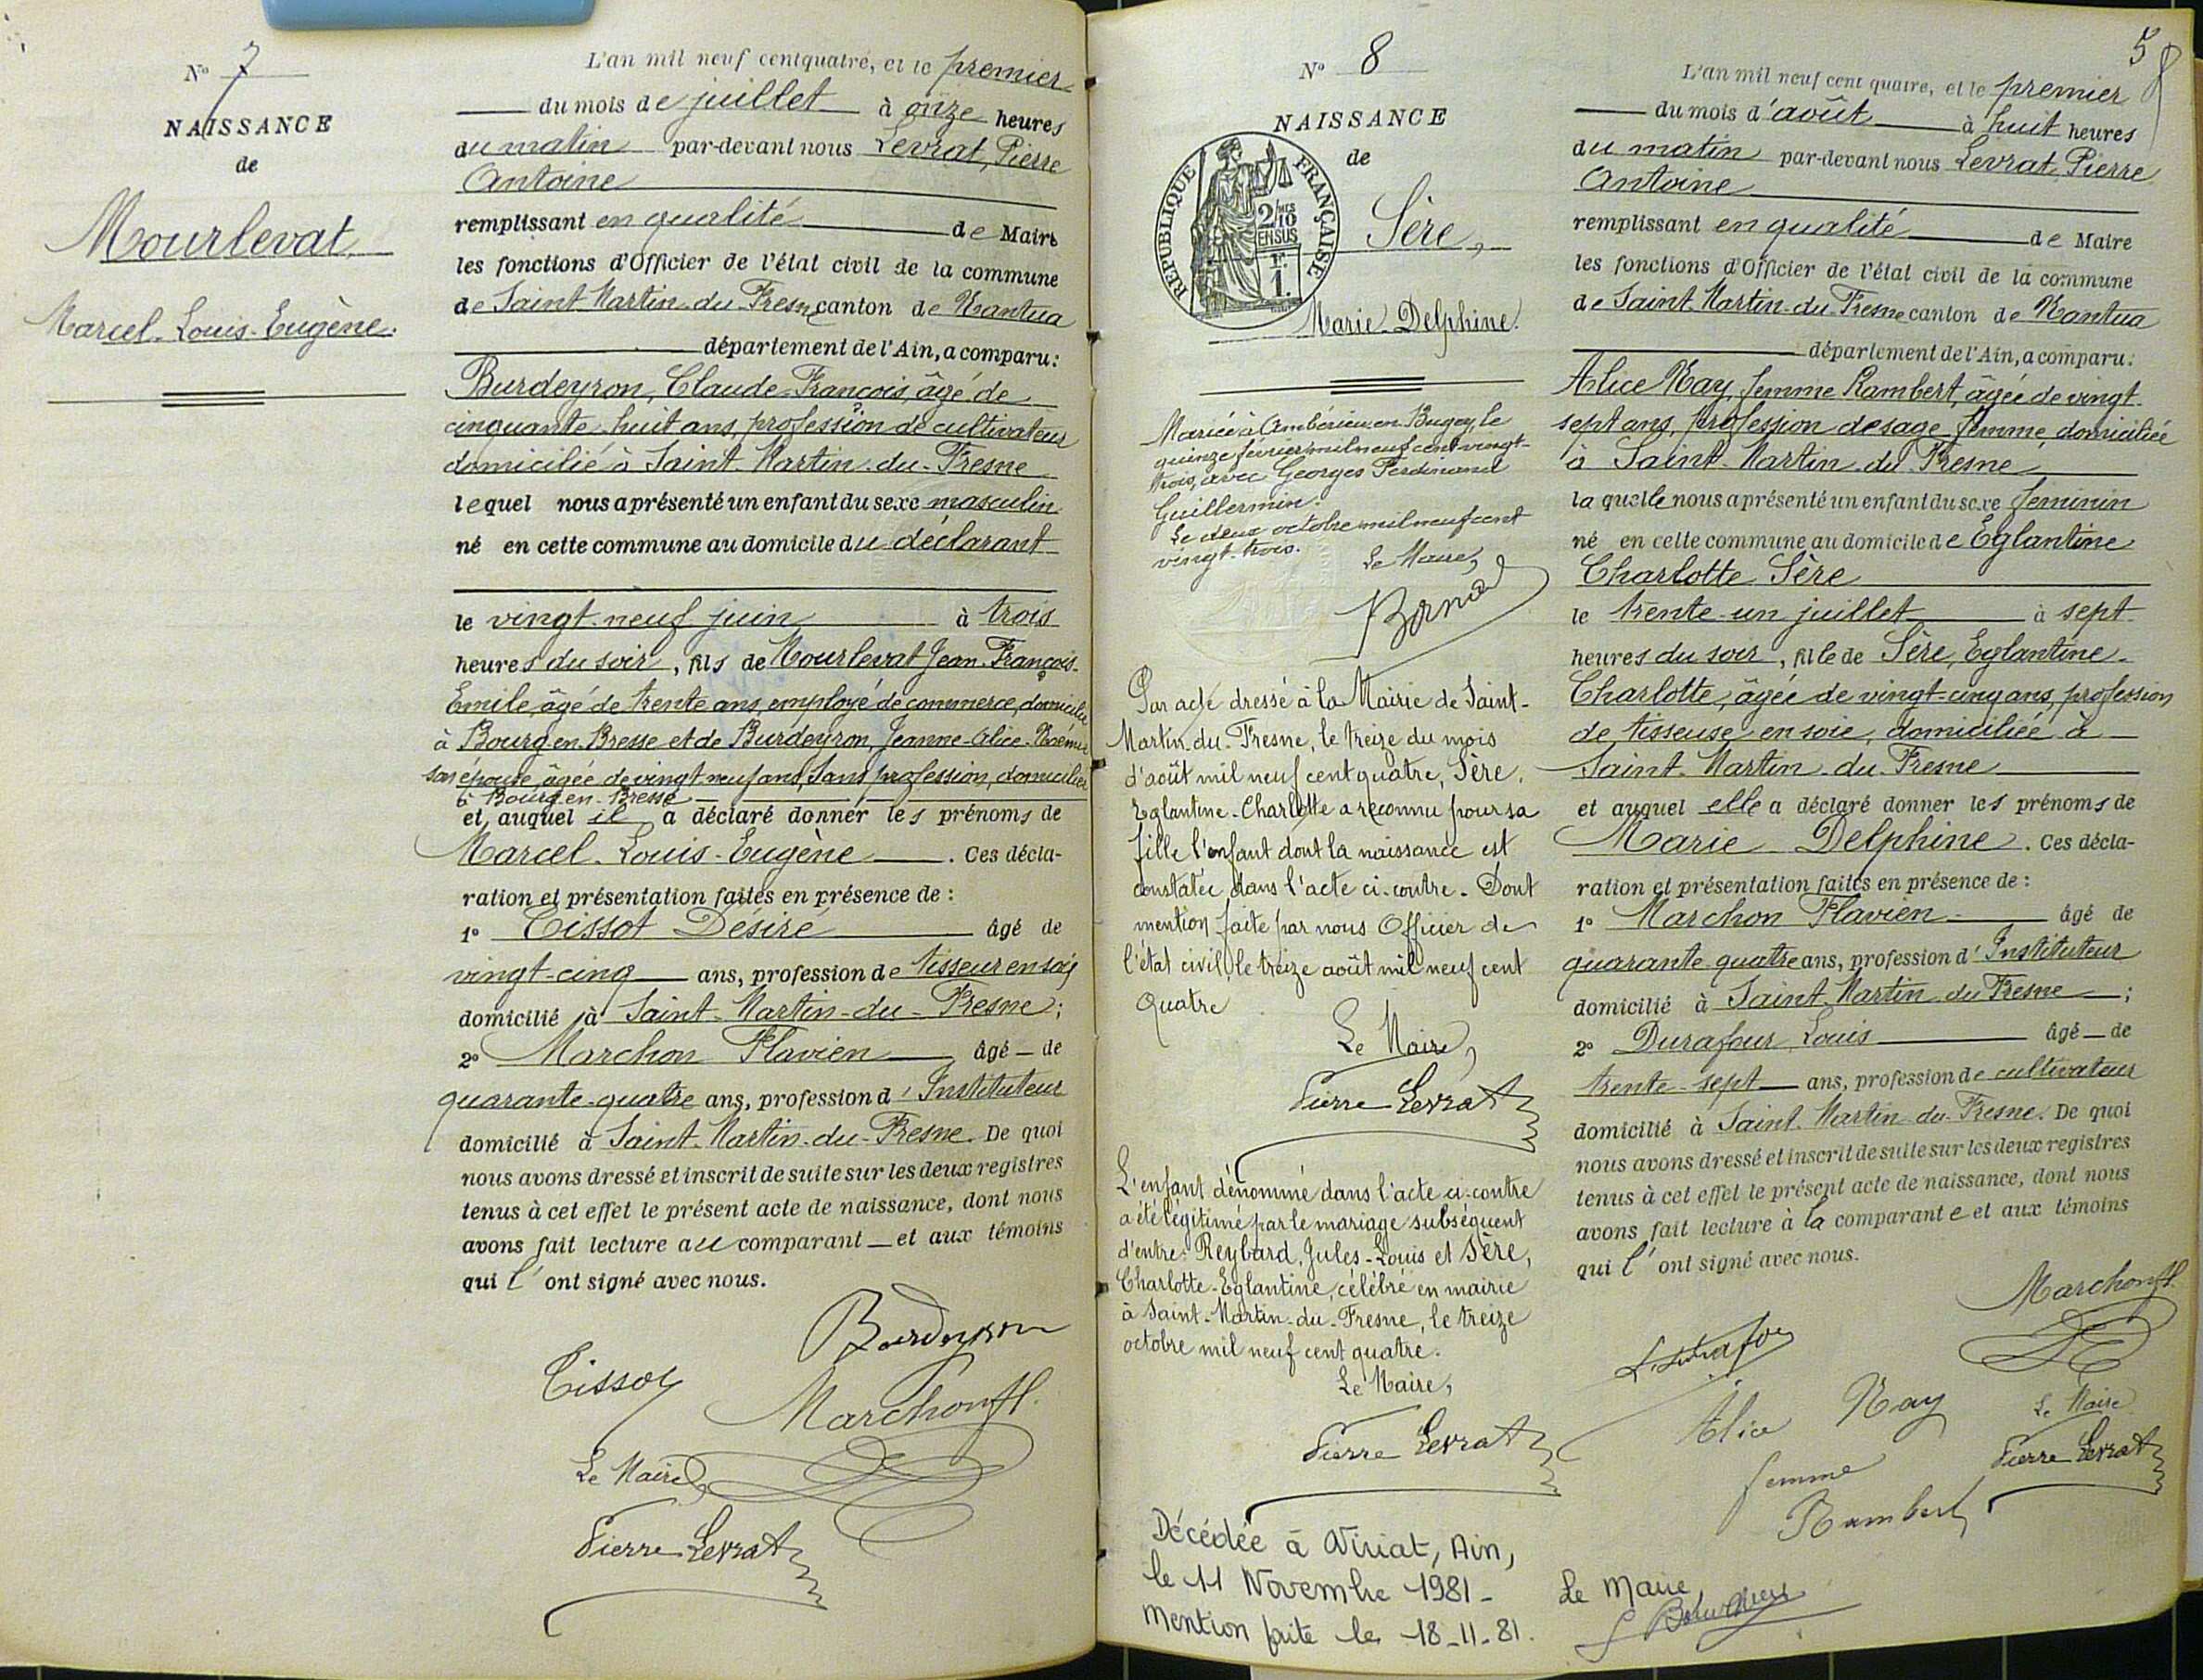 N° 7
NAISSANCE
de
Mourlevat,
Marcel-Louis-Eugène.
L'an mil neuf cent quatre, et le premier
du mois de juillet à onze heures
du matin par-devant nous Levrat, Pierre
Antoine
remplissant en qualité de Maire
les fonctions d'Officier de l'état civil de la commune
de Saint-Martin-du-Fresne canton de Nantua
département de l'Ain, a comparu:
Burdeyron, Claude-François, âgé de
cinquante-huit ans, profession de cultivateur
domicilié à Saint-Martin-du-Fresne
lequel nous a présenté un enfant du sexe masculin
né en cette commune au domicile du déclarant
le vingt-neuf juin à trois
heures du soir, fils de Mourlevat Jean-François-
Emile, âgé de trente ans, employé de commerce, domicilié
à Bourg-en-Bresse et de Burdeyron, Jeanne-Alice-Noémie
son épouse, âgée de vingt-neuf ans, sans profession, domiciliée
à Bourg-en-Bresse
et auquel il a déclaré donner les prénoms de
Marcel-Louis-Eugène. Ces décla-
ration et présentation faites en présence de :
1° Tissot Désiré âgé de
vingt-cinq ans, profession de tisseur en soie
domicilié à Saint-Martin-du-Fresne;
2° Marchon Flavien âgé de
quarante-quatre ans, profession d'Instituteur
domicilié à Saint-Martin-du-Fresne. De quoi
nous avons dressé et inscrit de suite sur les deux registres
tenus à cet effet le présent acte de naissance, dont nous
avons fait lecture au comparant et aux témoins
qui l'ont signé avec nous.
Burdeyron
Tissot
Marchon fl.
Le Maire
Pierre Levrat
58
N° 8
NAISSANCE
de
REPUBLIQUE FRANÇAISE
2/10 MES
EN SUS
F.
1.
Sère,
Marie-Delphine.
Mariée à Ambérieu-en-Bugey, le
quinze février mil neuf cent vingt-
trois, avec Georges Ferdinand
Guillermin.
Le deux octobre mil neuf cent
vingt-trois.
Le Maire,
Par acte dressé à la Mairie de Saint-
Martin-du-Fresne, le treize du mois
d'août mil neuf cent quatre, Sère,
Eglantine-Charlotte a reconnu pour sa
fille l'enfant dont la naissance est
constatée dans l'acte ci-contre. Dont
mention faite par nous Officier de
l'état civil, le treize août mil neuf cent
quatre
Le Maire,
Pierre Levrat
L'enfant dénommé dans l'acte ci-contre
a été légitimé par le mariage subséquent
d'entre: Reybard, Jules-Louis et Sère,
Charlotte-Eglantine, célébré en mairie
à Saint-Martin-du-Fresne, le treize
octobre mil neuf cent quatre.
Le Maire,
Pierre Levrat
Décédée à Viriat, Ain,
le 11 Novembre 1981-
Mention faite le 18-11-81.
Le Maire,
L'an mil neuf cent quatre, et le premier
du mois d'août à huit heures
du matin par-devant nous Levrat, Pierre
Antoine
remplissant en qualité de Maire
les fonctions d'Officier de l'état civil de la commune
de Saint-Martin-du-Fresne canton de Nantua
département de l'Ain, a comparu:
Alice Nay, femme Rambert, âgée de vingt-
sept ans, profession de sage-femme, domiciliée
à Saint-Martin-du-Fresne
laquelle nous a présenté un enfant du sexe féminin
né en cette commune au domicile de Eglantine
Charlotte Sère
le trente-un juillet à sept
heures du soir, fille de Sère, Eglantine-
Charlotte, âgée de vingt-cinq ans, profession
de tisseuse en soie, domiciliée à
Saint-Martin-du-Fresne
et auquel elle a déclaré donner les prénoms de
Marie Delphine. Ces décla-
ration et présentation faites en présence de :
1° Marchon Flavien âgé de
quarante-quatre ans, profession d'Instituteur
domicilié à Saint-Martin-du-Fresne;
2° Durafour Louis âgé de
trente-sept ans, profession de cultivateur
domicilié à Saint-Martin-du-Fresne. De quoi
nous avons dressé et inscrit de suite sur les deux registres
tenus à cet effet le présent acte de naissance, dont nous
avons fait lecture à la comparante et aux témoins
qui l'ont signé avec nous.
Marchon fl.
L. Durafour
Alice Nay
femme
Rambert
Le Maire
Pierre Levrat